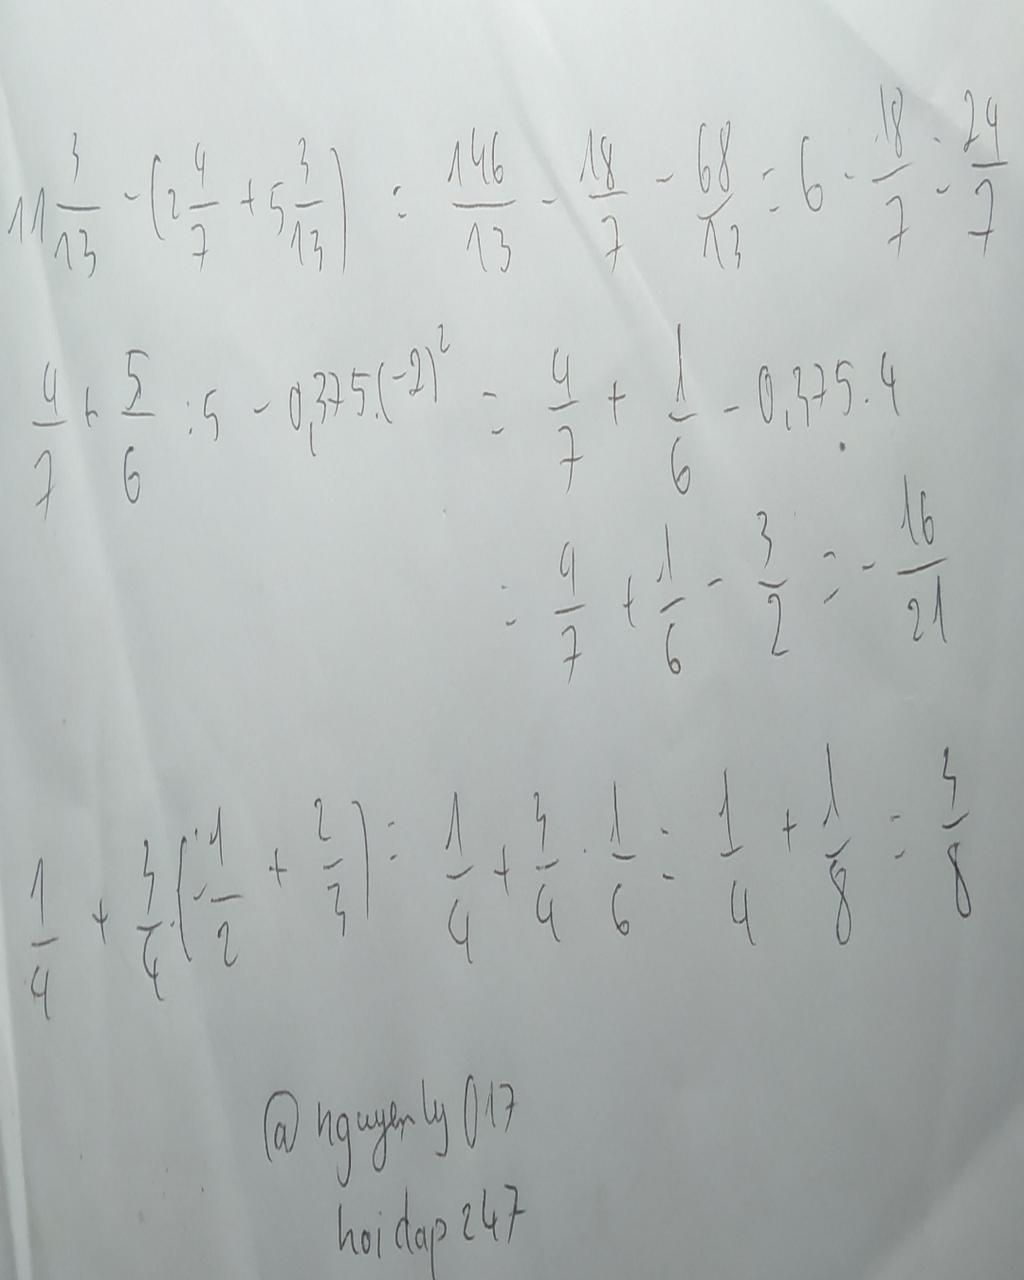 11 3/13 - (2 4/7 + 5 3/13) = 146/13 - 18/7 - 68/13 = 6 - 18/7 = 24/7
4/7 + 5/6 : 5 - 0,375.(-2)² = 4/7 + 1/6 - 0,375.4
= 4/7 + 1/6 - 3/2 = - 16/21
1/4 + 3/4.(-1/2 + 2/3) = 1/4 + 3/4 . 1/6 = 1/4 + 1/8 = 3/8
@nguyenly017
hoidap247